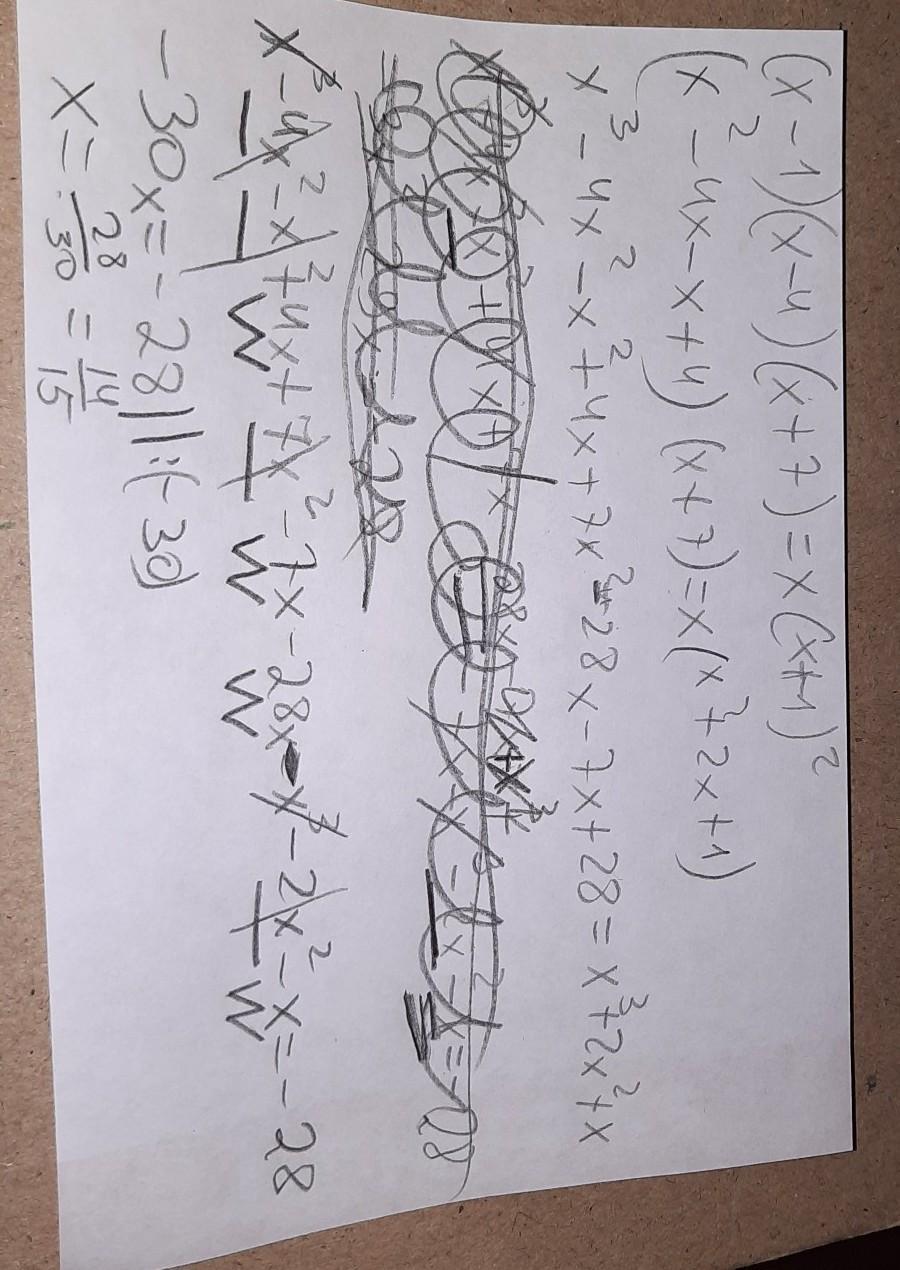 (x-1)(x-4)(x+7)=x(x+1)²
(x²-4x-x+4)(x+7)=x(x²+2x+1)
x³-4x²-x²+4x+7x²-28x-7x+28=x³+2x²+x
x³-4x²-x²+4x+7x²-7x-28x-x³-2x²-x=-28
-30x=-28||:(-30)
x=28/30=14/15